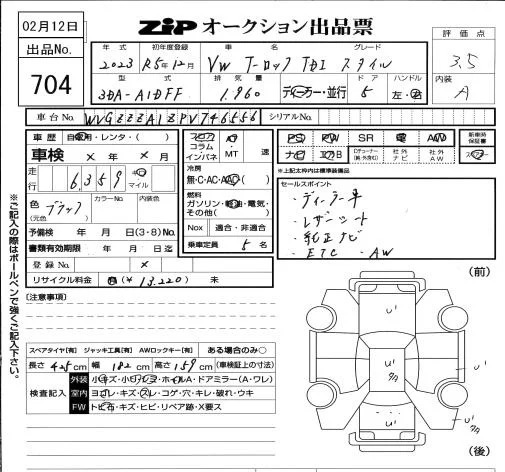 02月12日
ZIPオークション出品票
出品No.
704
評価点
3.5
内装
A
年式 初年度登録 車名 グレード
2023 R5年12月 VW T-ロック TDI スタイル
型式 排気量 ドア ハンドル
3DA-A1DFF 1,960 ディーラー・並行 5 左・右
車台No. WVGZZZA1ZPV746556 シリアルNo.
車歴 自家用・レンタ・( )
車検 × 年 × 月
走行 6,359 キロ マイル
色(元色) ブラック カラーNo. 内装色
予備検 年 月 日(3・8)No.
書類有効期限 年 月 日迄
登録No. ×
リサイクル料金 有(¥ 13,220) 未
フロア コラム インパネ AT ・ MT 速
冷房
無・C・AC・AAC( )
燃料
ガソリン・軽油・電気・その他( )
Nox 適合・非適合
乗車定員 5 名
PS PW SR 革 AW 新車時保証書
ナビ エアB 社外ナビ 社外AW
※上記太枠内は純正装備
セールスポイント
・ディーラー車
・レザーシート
・純正ナビ
・ETC ・AW
※ご記入の際はボールペンで強くご記入下さい。
[注意事項]
スペアタイヤ[有] ジャッキ工具[有] AWロックキー[有] ある場合のみ○
長さ 425 cm 幅 182 cm 高さ 159 cm (車検証上の寸法)
検査記入
外装 小キズ・小凹・シミ・ホイルA・ドアミラー(A・ワレ)
室内 ヨゴレ・キズ・スレ・コゲ・穴・キレ・破れ・ウキ
FW トビ石・キズ・ヒビ・リペア跡・X要ス
(前)
U'
U'
U'
タタ
U'
タタ
(後)